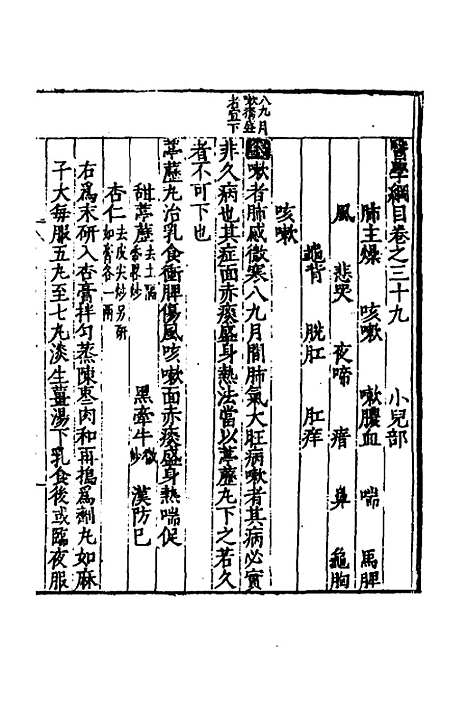 醫學綱目卷之三十九　小兒部
肺主燥　咳嗽　嗽膿血　喘　馬脾
風　悲哭　夜啼　瘖　鼻　龜胸
龜背　脫肛　肛痒
咳嗽
八九月
嗽病盛
者宜下
嗽者肺感微寒八九月間肺氣大肛病嗽者其病必實
非久病也其症面赤痰盛身熱法當以葶藶丸下之若久
者不可下也
葶藶丸治乳食衝脾傷風咳嗽面赤痰盛身熱喘促
甜葶藶去土隔紙炒　黑牽牛微炒　漢防己
杏仁去皮尖炒另研如膏各一兩
右爲末研入杏膏拌勻蒸陳棗肉和再搗爲劑丸如麻
子大每服五丸至七丸淡生薑湯下乳食後或臨夜服